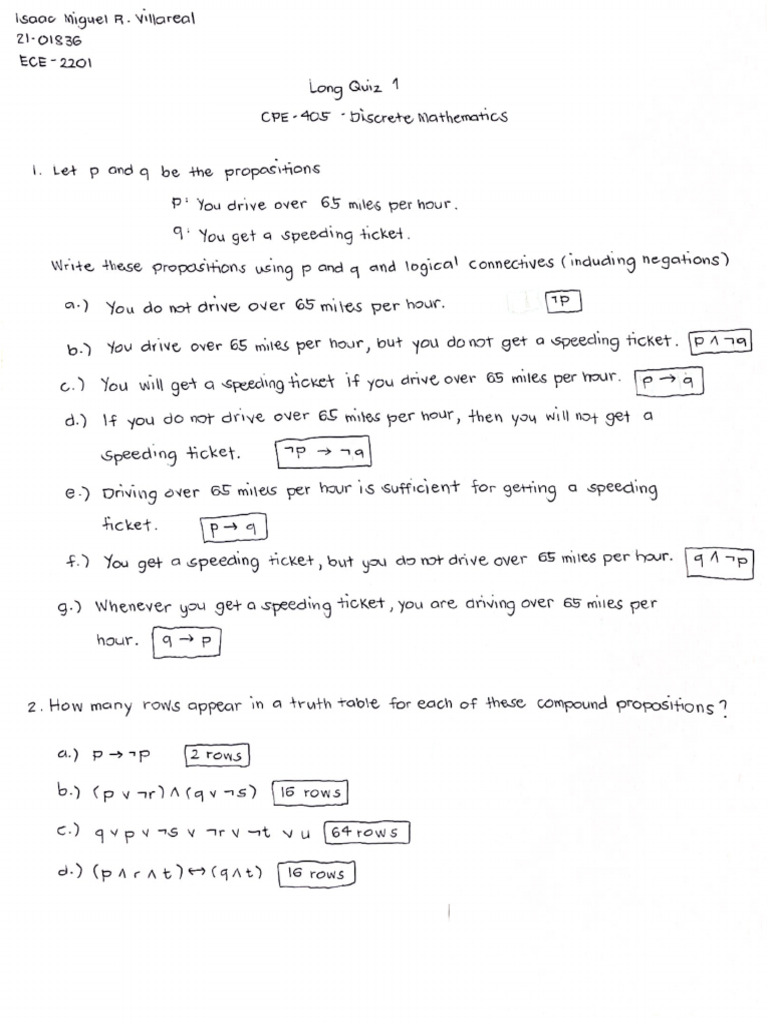 Isaac Miguel R. Villareal
21-01836
ECE-2201
Long Quiz 1
CPE-405 - Discrete Mathematics
1. Let p and q be the propositions
p: You drive over 65 miles per hour.
q: You get a speeding ticket.
Write these propositions using p and q and logical connectives (including negations)
a.) You do not drive over 65 miles per hour. ¬p
b.) You drive over 65 miles per hour, but you do not get a speeding ticket. p ∧ ¬q
c.) You will get a speeding ticket if you drive over 65 miles per hour. p → q
d.) If you do not drive over 65 miles per hour, then you will not get a
speeding ticket. ¬p → ¬q
e.) Driving over 65 miles per hour is sufficient for getting a speeding
ticket. p → q
f.) You get a speeding ticket, but you do not drive over 65 miles per hour. q ∧ ¬p
g.) Whenever you get a speeding ticket, you are driving over 65 miles per
hour. q → p
2. How many rows appear in a truth table for each of these compound propositions?
a.) p → ¬p 2 rows
b.) (p ∨ ¬r) ∧ (q ∨ ¬s) 16 rows
c.) q ∨ p ∨ ¬s ∨ ¬r ∨ ¬t ∨ u 64 rows
d.) (p ∧ r ∧ t) ↔ (q ∧ t) 16 rows